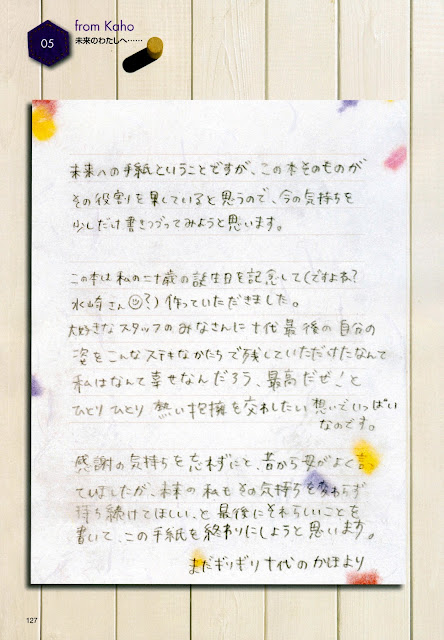 05
from Kaho
未来のわたしへ……
未来への手紙ということですが、この本そのものが
その役割を果していると思うので、今の気持ちを
少しだけ書きつづってみようと思います。
この本は私の二十歳の誕生日を記念して(ですよね?
水崎さん?)作っていただきました。
大好きなスタッフのみなさんに十代最後の自分の
姿をこんなステキなかたちで残していただけたなんて
私はなんて幸せなんだろう、最高だぜ!と
ひとりひとり熱い抱擁を交わしたい想いでいっぱい
なのです。
感謝の気持ちを忘れずにと、昔から母がよく言っ
ていましたが、未来の私もその気持ちを変わらず
持ち続けてほしい、と最後にそれらしいことを
書いて、この手紙を終わりにしようと思います。
まだギリギリ十代のかほより
127